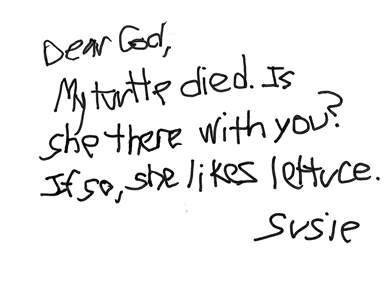 Dear God,
My turtle died. Is
she there with you?
If so, she likes lettuce.
Susie